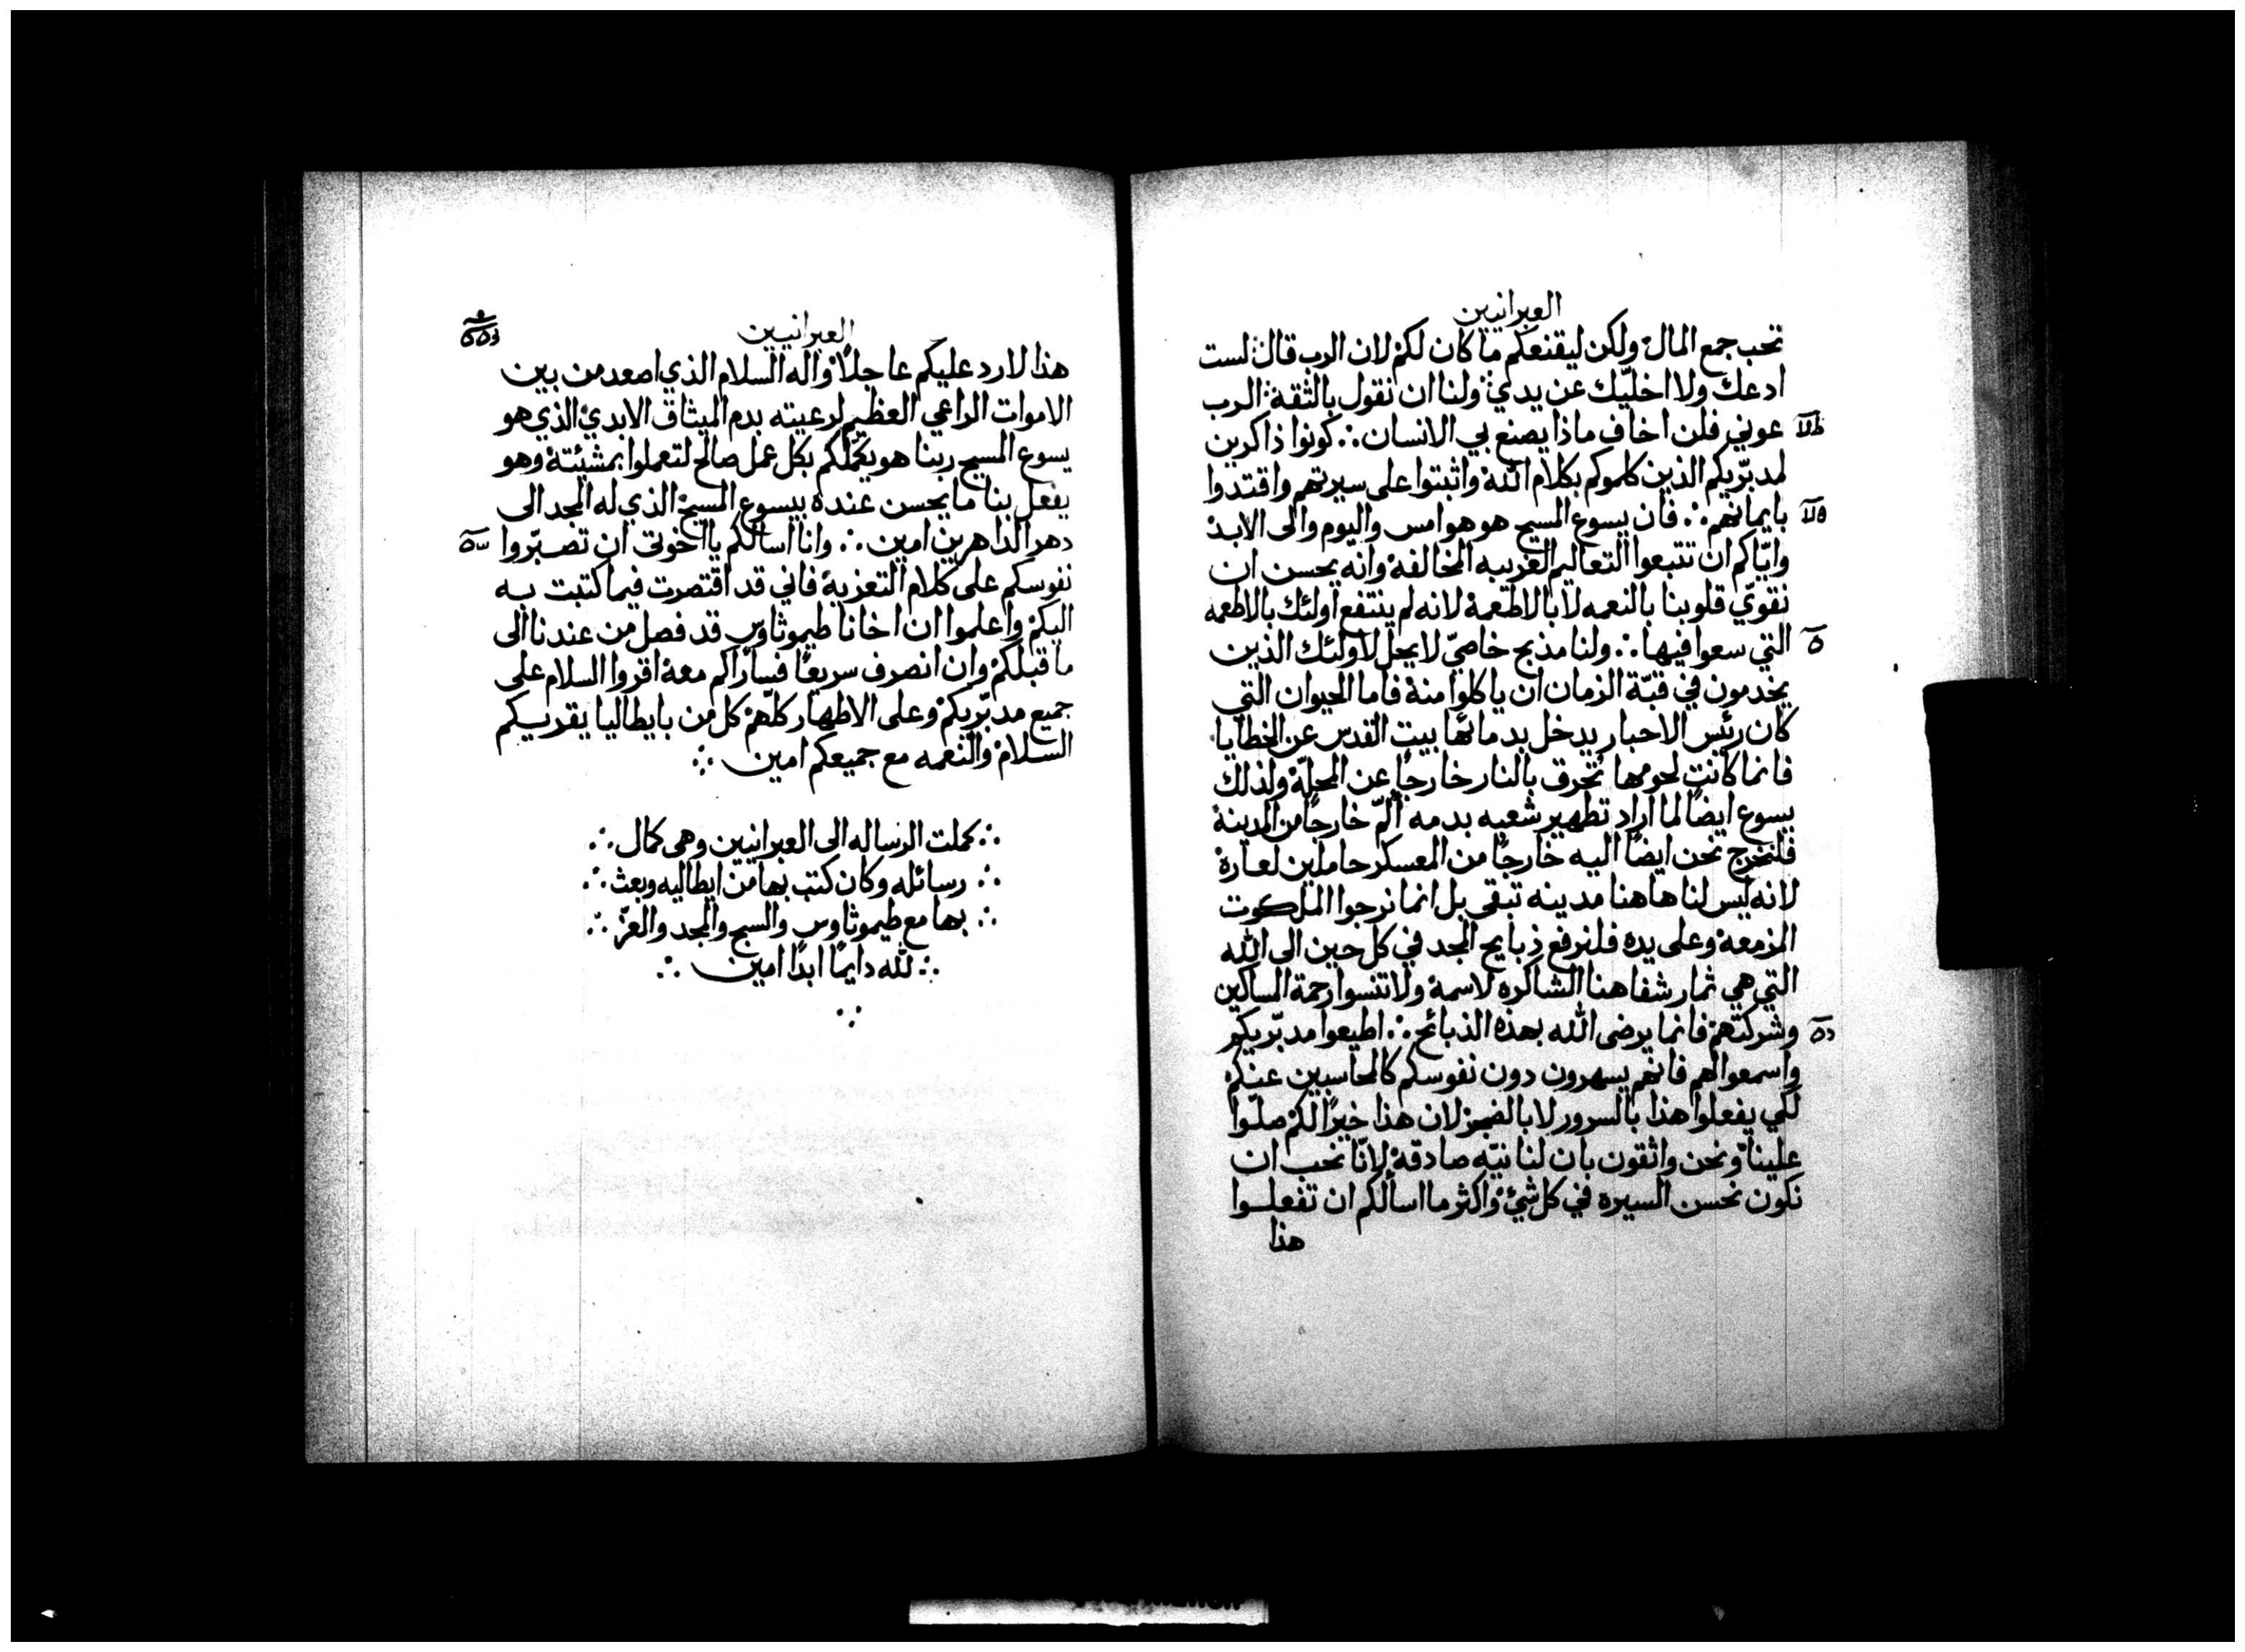 العبرانيين
تحب جمع المال ولكن ليقنعكم ما كان لكم لان الرب قال لست
ادعك ولا اخليّك عن يدي ولنا ان نقول بالثقة الرب
عوني فلن اخاف ماذا يصنع بي الانسان ∴ كونوا ذاكرين
لمدبّريكم الذين كلموكم بكلام الله واثبتوا على سيرتهم واقتدوا
بايمانهم ∴ فان يسوع المسيح هو هو امس واليوم والى الابد
وايّاكم ان تتبعوا التعاليم الغريبه المخالفة وانه يحسن ان
نقوّي قلوبنا بالنعمه لا بالاطعمة لانه لم ينتفع اولئك بالاطعمه
التي سعوا فيها ∴ ولنا مذبح خاصّي لا يحل لاولئك الذين
يخدمون في قبّة الزمان ان ياكلوا منه فاما الحيوان التي
كان رئيس الاحبار يدخل بدمائها بيت القدس عن الخطايا
فانما كانت لحومها تحرق بالنار خارجاً عن المحلّة ولذلك
يسوع ايضاً لما اراد تطهير شعبه بدمه ألمّ خارجاً من المدينة
فلنخرج نحن ايضاً اليه خارجاً من المعسكر حاملين لعاره
لانه ليس لنا هاهنا مدينه تبقى بل انما نرجوا الملكوت
المزمعة وعلى يده فلنرفع ذبايح المجد في كل حين الى الله
التي هي ثمار شفاهنا الشاكره لاسمه ولا تنسوا رحمة المساكين
وشركتهم فانما يرضى الله بهذه الذبائح ∴ اطيعوا مدبّريكم
واسمعوا لهم فانهم يسهرون دون نفوسكم كالمحاسبين عنكم
لكي يفعلوا هذا بالسرور لا بالضجر لان هذا خيراً لكم صلّوا
علينا ونحن واثقون بان لنا نيّه صادقة لانّا نحب ان
نكون نحسن السيره في كل شئ واكثر ما اسألكم ان تفعلوا
هذا
العبرانيين
هذا لارد عليكم عاجلاً واله السلام الذي اصعد من بين
الاموات الراعي العظيم لرعيته بدم الميثاق الابدي الذي هو
يسوع المسيح ربنا هو يكملكم بكل عمل صالح لتعملوا بمشيئته وهو
يفعل بنا ما يحسن عنده بيسوع المسيح الذي له المجد الى
دهر الداهرين امين ∴ وانا اسألكم يا اخوتى ان تصبّروا
نفوسكم على كلام التعزية فاني قد اقتصرت فيما كتبت به
اليكم واعلموا ان اخانا طيموثاوس قد فصل من عندنا الى
ما قبلكم وان انصرف سريعاً فسأراكم معه اقروا السلام على
جميع مدبّريكم وعلى الاطهار كلّهم كل من بايطاليا يقريكم
السلام والنعمه مع جميعكم امين ∴
∴ كملت الرساله الى العبرانيين وهى كمال ∴
∴ رسائله وكان كتب بها من ايطاليه وبعث ∴
∴ بها مع طيموثاوس والسبح والمجد والعزّ ∴
∴ لله دايماً ابداً امين ∴